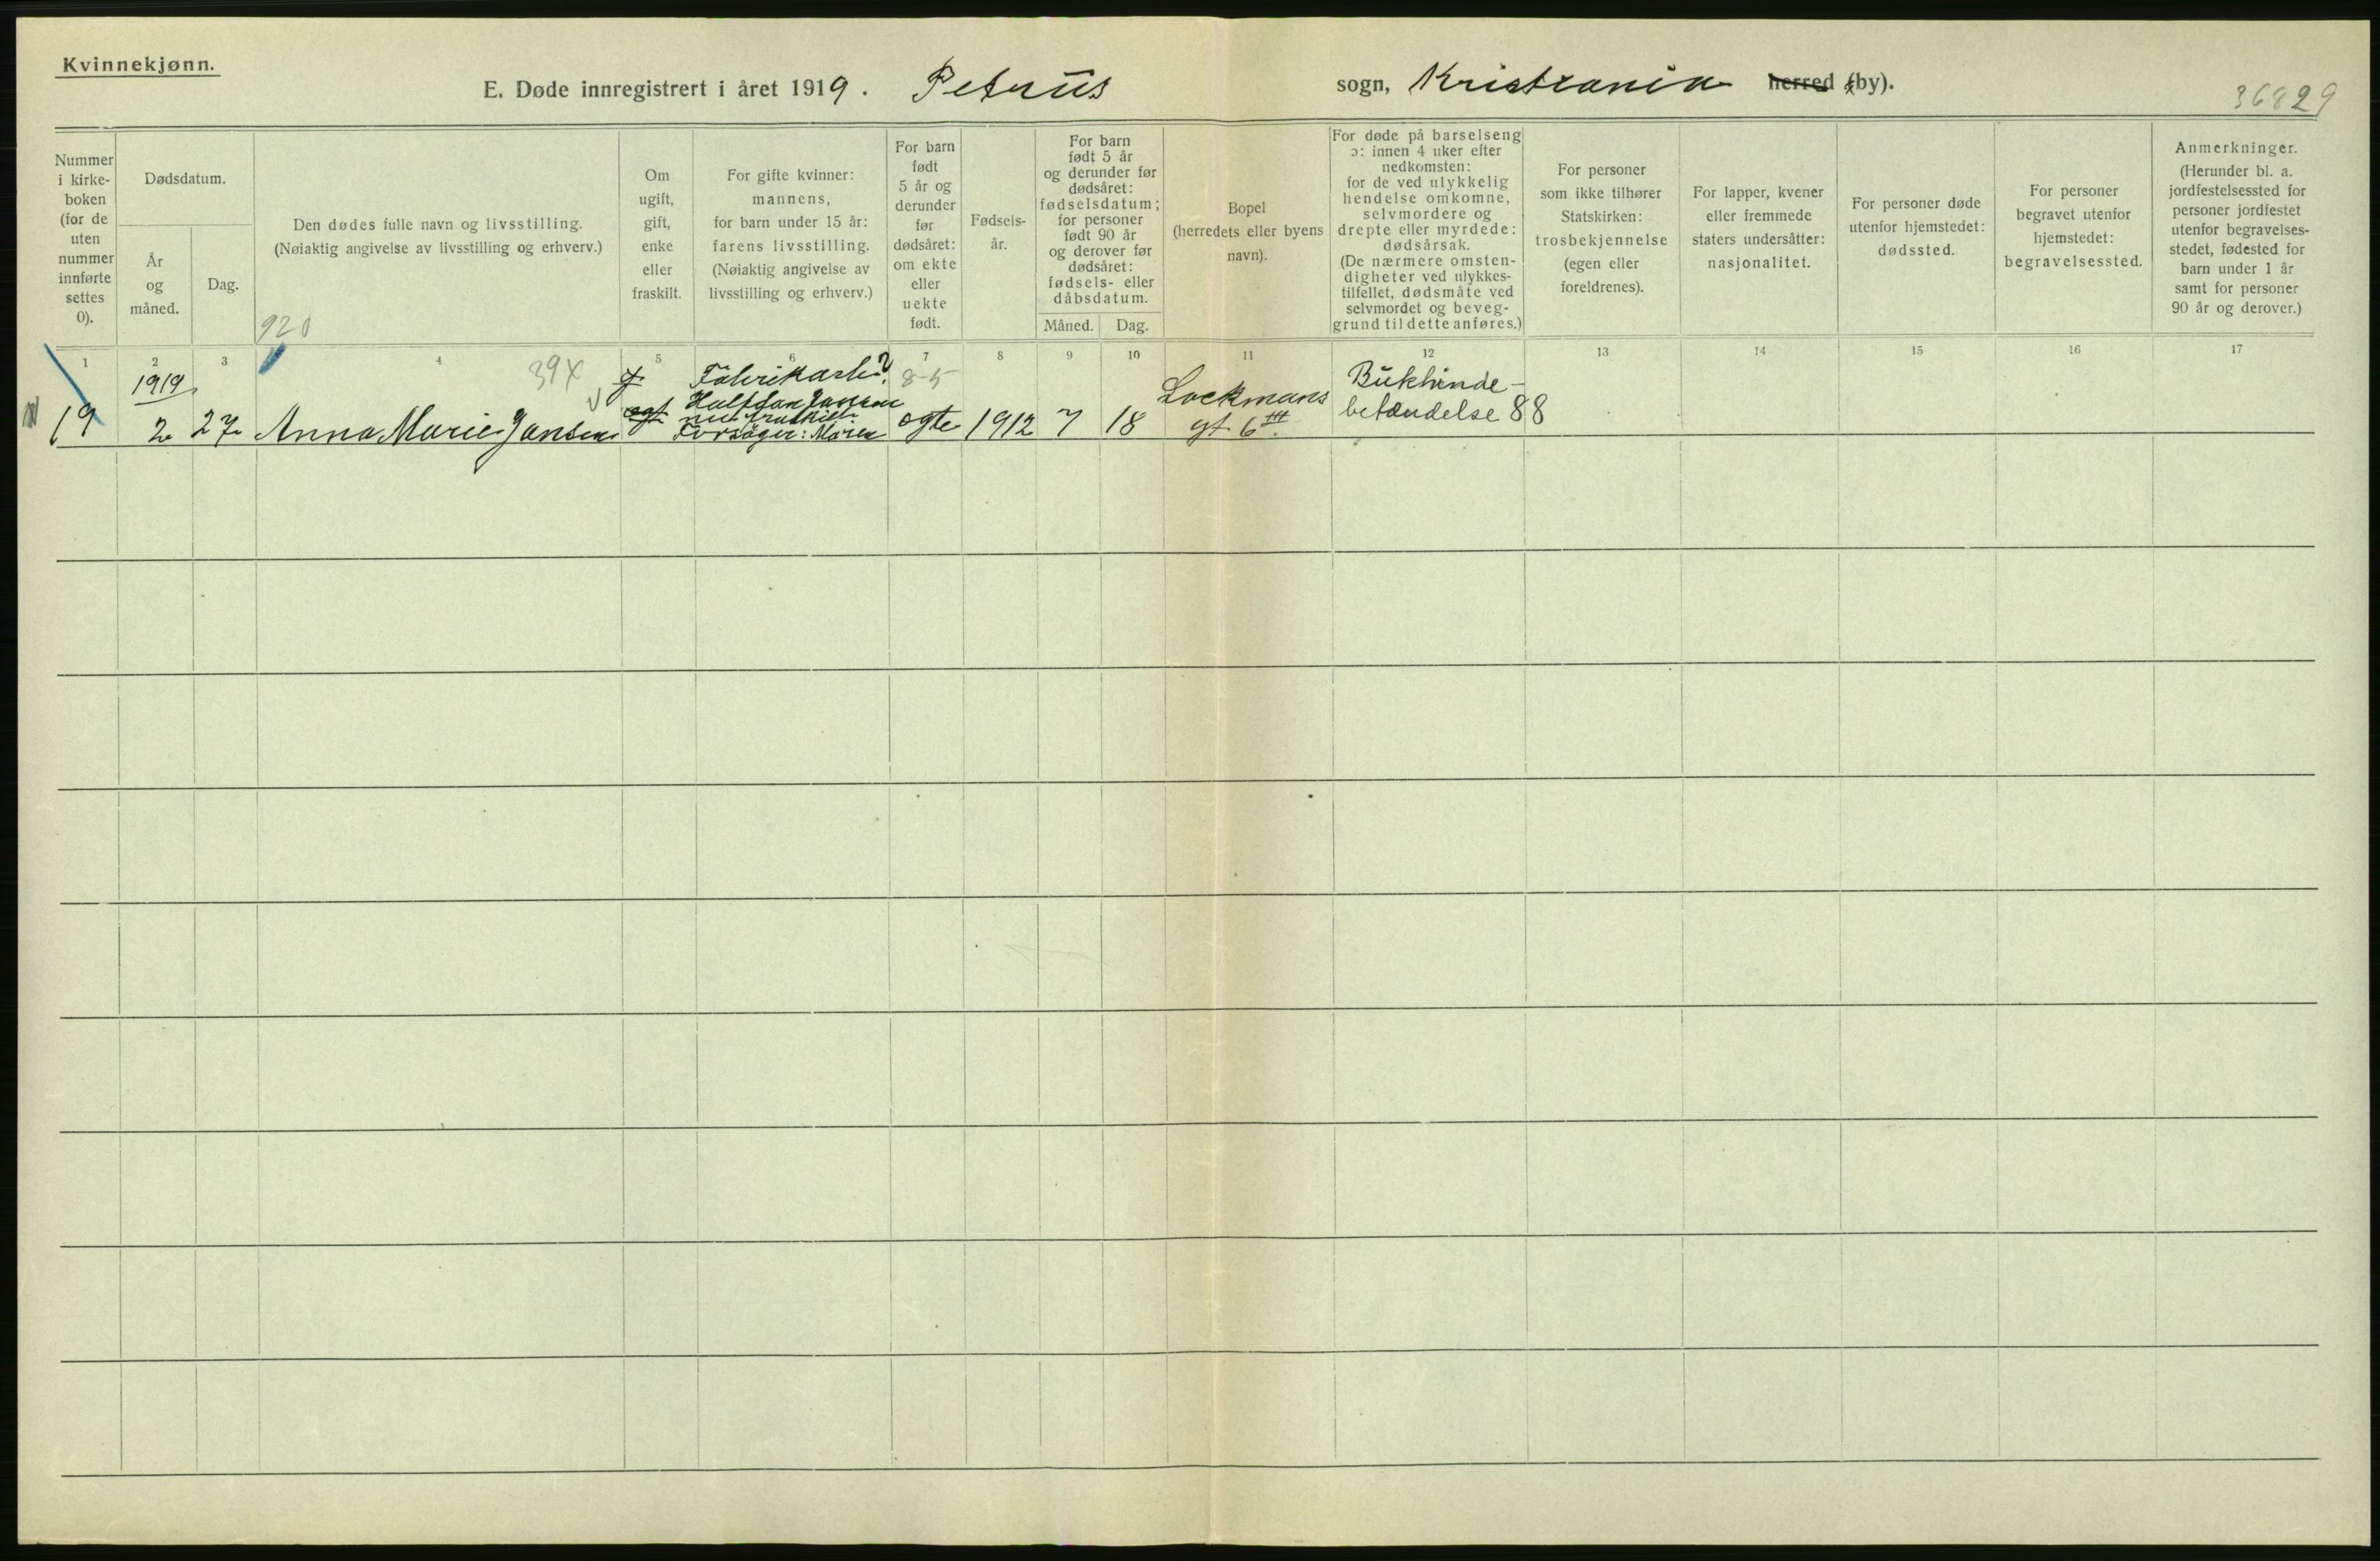 Kvinnekjønn.
E. Døde innregistrert i året 1919. Petrus sogn, Kristiania herred (by).
36829
Nummer
i kirke-
boken
(for de
uten
nummer
innførte
settes
0).
Dødsdatum.
År
og
måned.
Dag.
Den dødes fulle navn og livsstilling.
(Nøiaktig angivelse av livsstilling og erhverv.)
920
Om
ugift,
gift,
enke
eller
fraskilt.
For gifte kvinner:
mannens,
for barn under 15 år:
farens livsstilling.
(Nøiaktig angivelse av
livsstilling og erhverv.)
For barn
født
5 år og
derunder
før
dødsåret:
om ekte
eller
uekte
født.
Fødsels-
år.
For barn
født 5 år
og derunder før
dødsåret:
fødselsdatum;
for personer
født 90 år
og derover før
dødsåret:
fødsels- eller
dåbsdatum.
Måned.
Dag.
Bopel
(herredets eller byens
navn).
For døde på barselseng
ɔ: innen 4 uker efter
nedkomsten:
for de ved ulykkelig
hendelse omkomne,
selvmordere og
drepte eller myrdede:
dødsårsak.
(De nærmere omsten-
digheter ved ulykkes-
tilfellet, dødsmåte ved
selvmordet og beveg-
grund til dette anføres.)
For personer
som ikke tilhører
Statskirken:
trosbekjennelse
(egen eller
foreldrenes).
For lapper, kvener
eller fremmede
staters undersåtter:
nasjonalitet.
For personer døde
utenfor hjemstedet:
dødssted.
For personer
begravet utenfor
hjemstedet:
begravelsessted.
Anmerkninger.
(Herunder bl. a.
jordfestelsessted for
personer jordfestet
utenfor begravelses-
stedet, fødested for
barn under 1 år
samt for personer
90 år og derover.)
1 2 3 4 5 6 7 8 9 10 11 12 13 14 15 16 17
19
1919
2
27
39X
Anna Marie Jansen
Fabrikarb.?
Halfdan Jansen
Forsøger: Moren
8-5
ogte
1912
7
18
Lockmans
gt. 6
Bukhinde-
betændelse 88